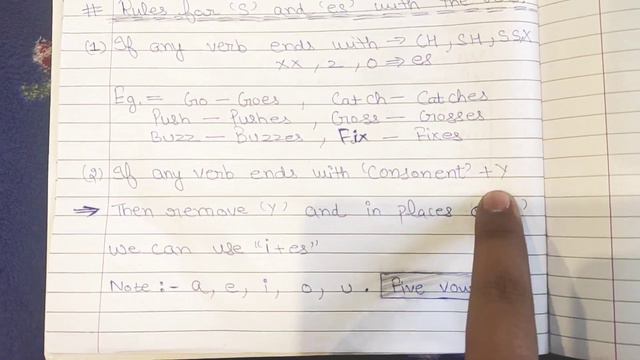 # Rules for 'S' and 'es' with the
(1) If any verb ends with → CH, SH, SS,X
XX, Z, O ⇒ es
Eg. = Go – Goes, Catch – Catches
Push – Pushes, Gross – Grosses
Buzz – Buzzes, Fix – Fixes
(2) If any verb ends with 'Consonent' + Y
⇒ Then remove 'Y' and in places
we can use "i+es"
Note :- a, e, i, o, u. Five